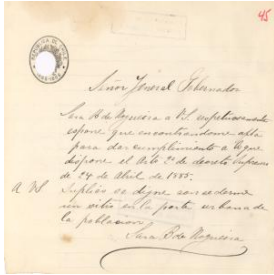 45
Señor Jeneral Gobernador
Sara B de Noguiera a VS. respetuosamente
espone que encontrandome apta
para dar cumplimiento a lo que
dispone el Arto 2º de decreto Supremo
de 24 de Abril de 1885.
A VS Suplico se digne concederme
un sitio en la parte urbana de
la poblacion
Sara B de Noguiera